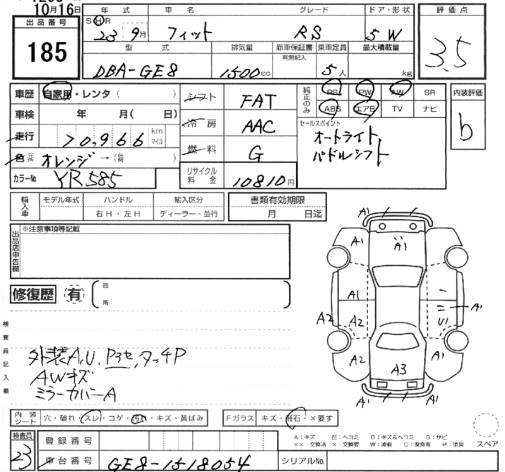 10月16日
出品番号 185
年式 車名 グレード ドア・形状 評価点
S H 23 9月 フィット RS 5 W 3.5
型式 排気量 新車保証書 有無記入 乗車定員 最大積載量
DBA-GE8 1500cc 5人 kg
車歴 自家用・レンタ( ) シフト FAT 純正のみ PS PW AW SR 内装評価
ABS エアB TV ナビ b
車検 年 月( 日) 冷房 AAC セールスポイント
走行 70,966 km マイル オートライト
色 オレンジ→( ) 燃料 G パドルシフト
カラーNo YR585 リサイクル料金 10810円
輸入車 モデル年式 ハンドル 輸入区分 書類有効期限
右H・左H ディーラー・並行 月 日迄
出品店申告欄 ※注意事項等記載
A1 A1 A1
修復歴 有 箇所
A1 A1 A1
A2 A2 U1
A2 A2
A3
A1 A1
検査員記入欄
外装A,U,P3セ,タッチP
AWキズ
ミラーカバーA
内装シート 穴・破れ・スレ・コゲ・キズ・黄ばみ Fガラス キズ・飛石・×要す スペア
検査員 23 登録番号
A:キズ
車台番号 GE8-1518054 シリアルNo.